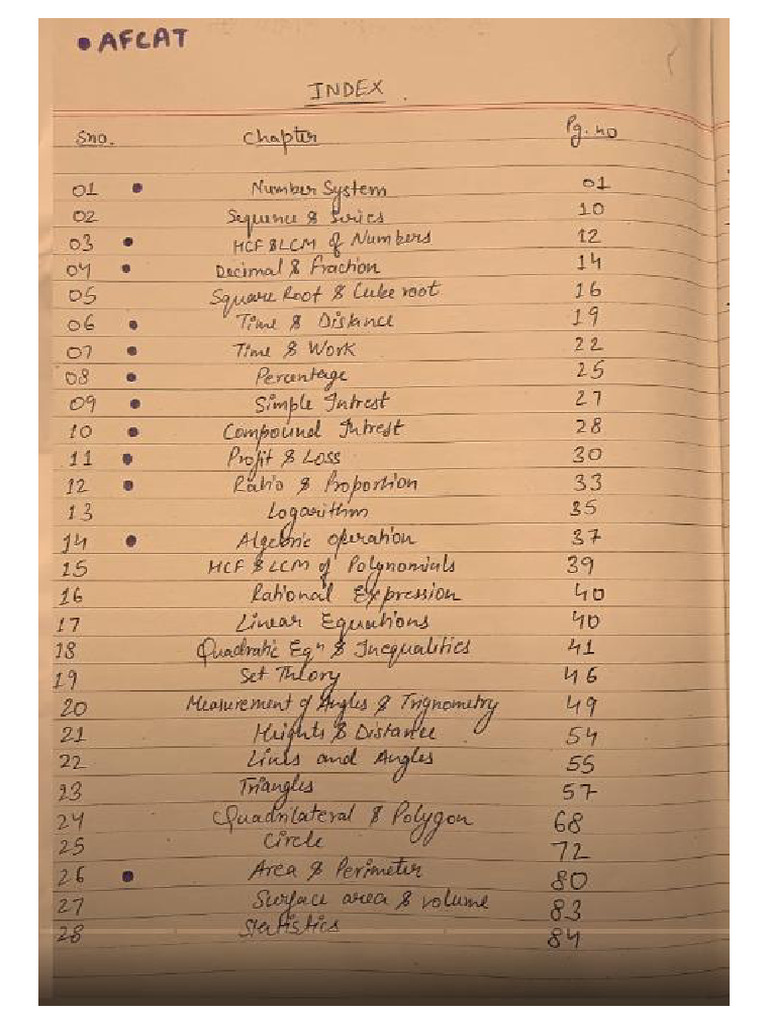 • AFCAT
INDEX
Sno. Chapter Pg. no
01 • Number System 01
02 Sequence & Series 10
03 • HCF & LCM of Numbers 12
04 • Decimal & Fraction 14
05 Square Root & Cube root 16
06 • Time & Distance 19
07 • Time & Work 22
08 • Percentage 25
09 • Simple Intrest 27
10 • Compound Intrest 28
11 • Profit & Loss 30
12 • Ratio & Proportion 33
13 Logarithm 35
14 • Algebric operation 37
15 HCF & LCM of Polynomials 39
16 Rational Expression 40
17 Linear Equations 40
18 Quadratic Eqⁿ & Inequalities 41
19 Set Theory 46
20 Measurement of Angles & Trignometry 49
21 Heights & Distance 54
22 Lines and Angles 55
23 Triangles 57
24 Quadrilateral & Polygon 68
25 Circle 72
26 • Area & Perimeter 80
27 Surface area & volume 83
28 Statistics 84